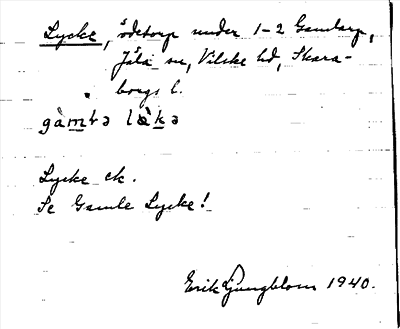 Lycke, ödetorp under 1-2 Gamlarp,
Jäla sn, Vilske hd, Skara-
borgs l.
gàmbə lỳkə
Lycke ck.
Se Gamle Lycke!
Erik Ljungblom 1940.